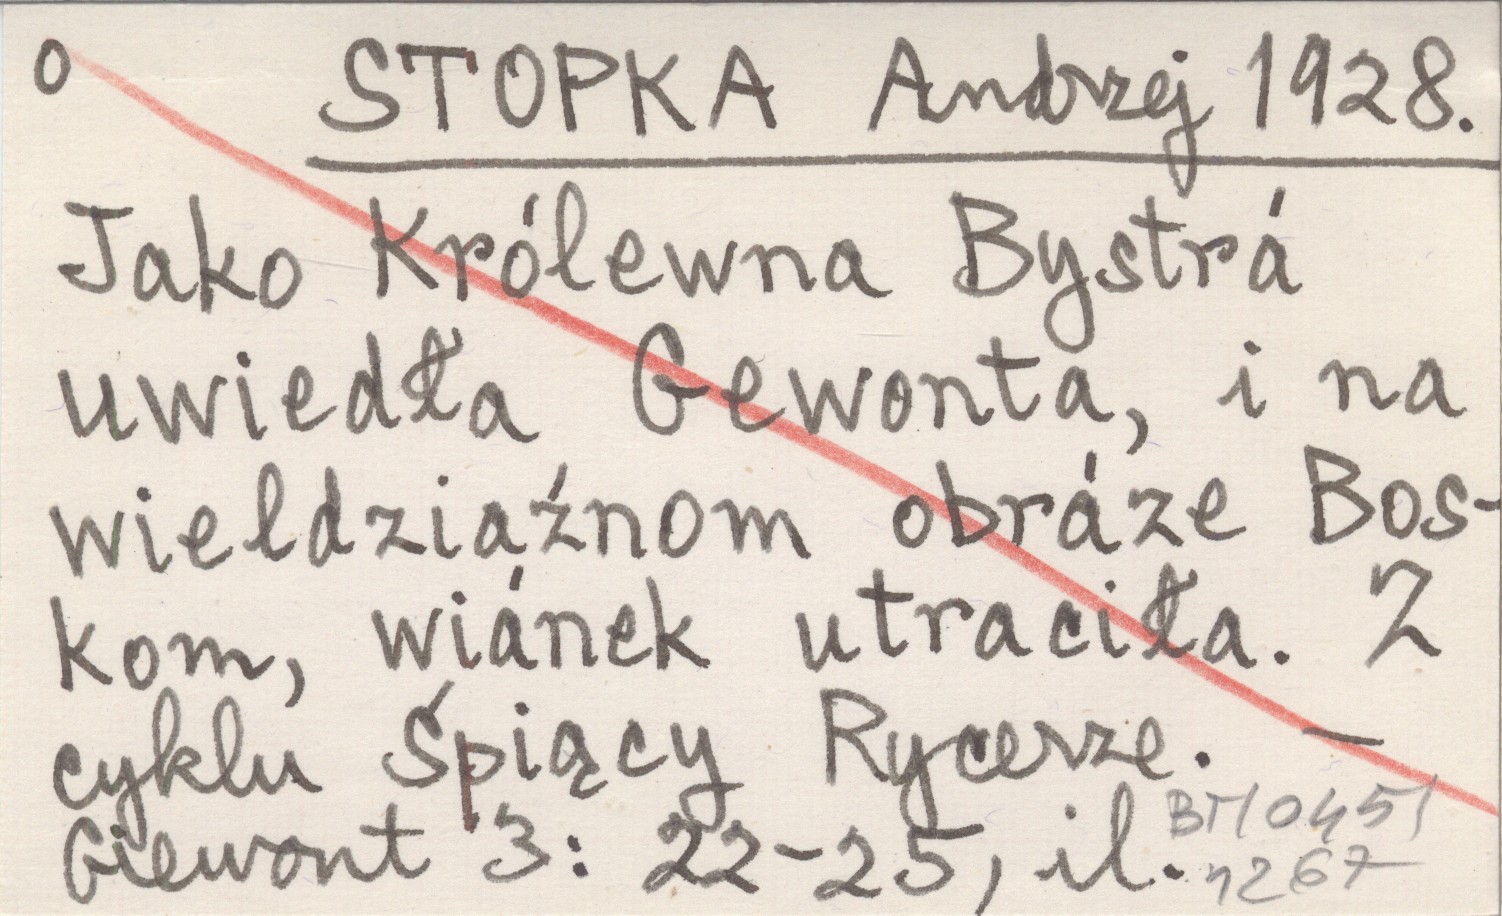 o STOPKA Andrzej 1928.
Jako Królewna Bystrá
uwiedła Gewonta, i na
wieldziaźnom obráze Bos-
kom, wiánek utraciła. Z
cyklu Śpiący Rycerze. –
Giewont 3: 22-25, il.
BT/045/
1267